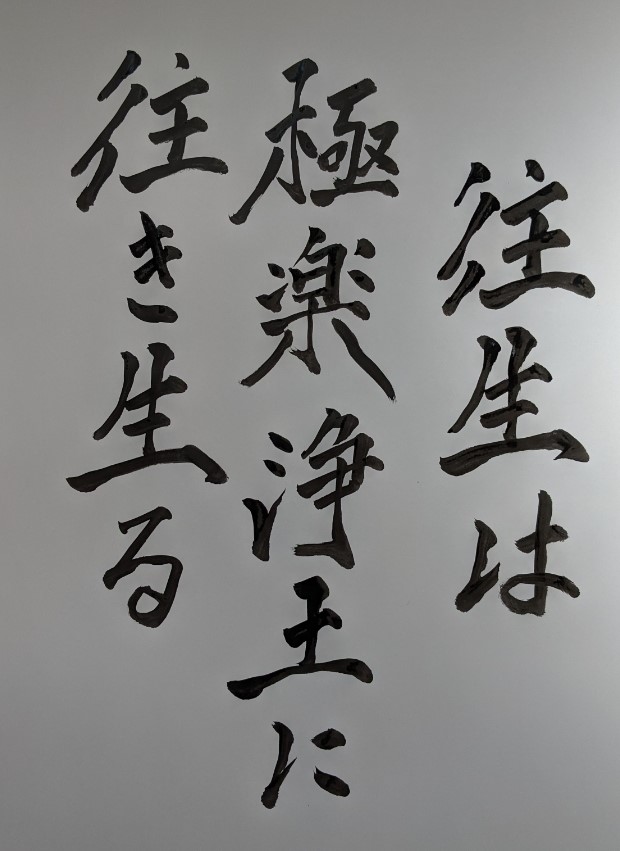 往生は
極楽浄土に
往き生る